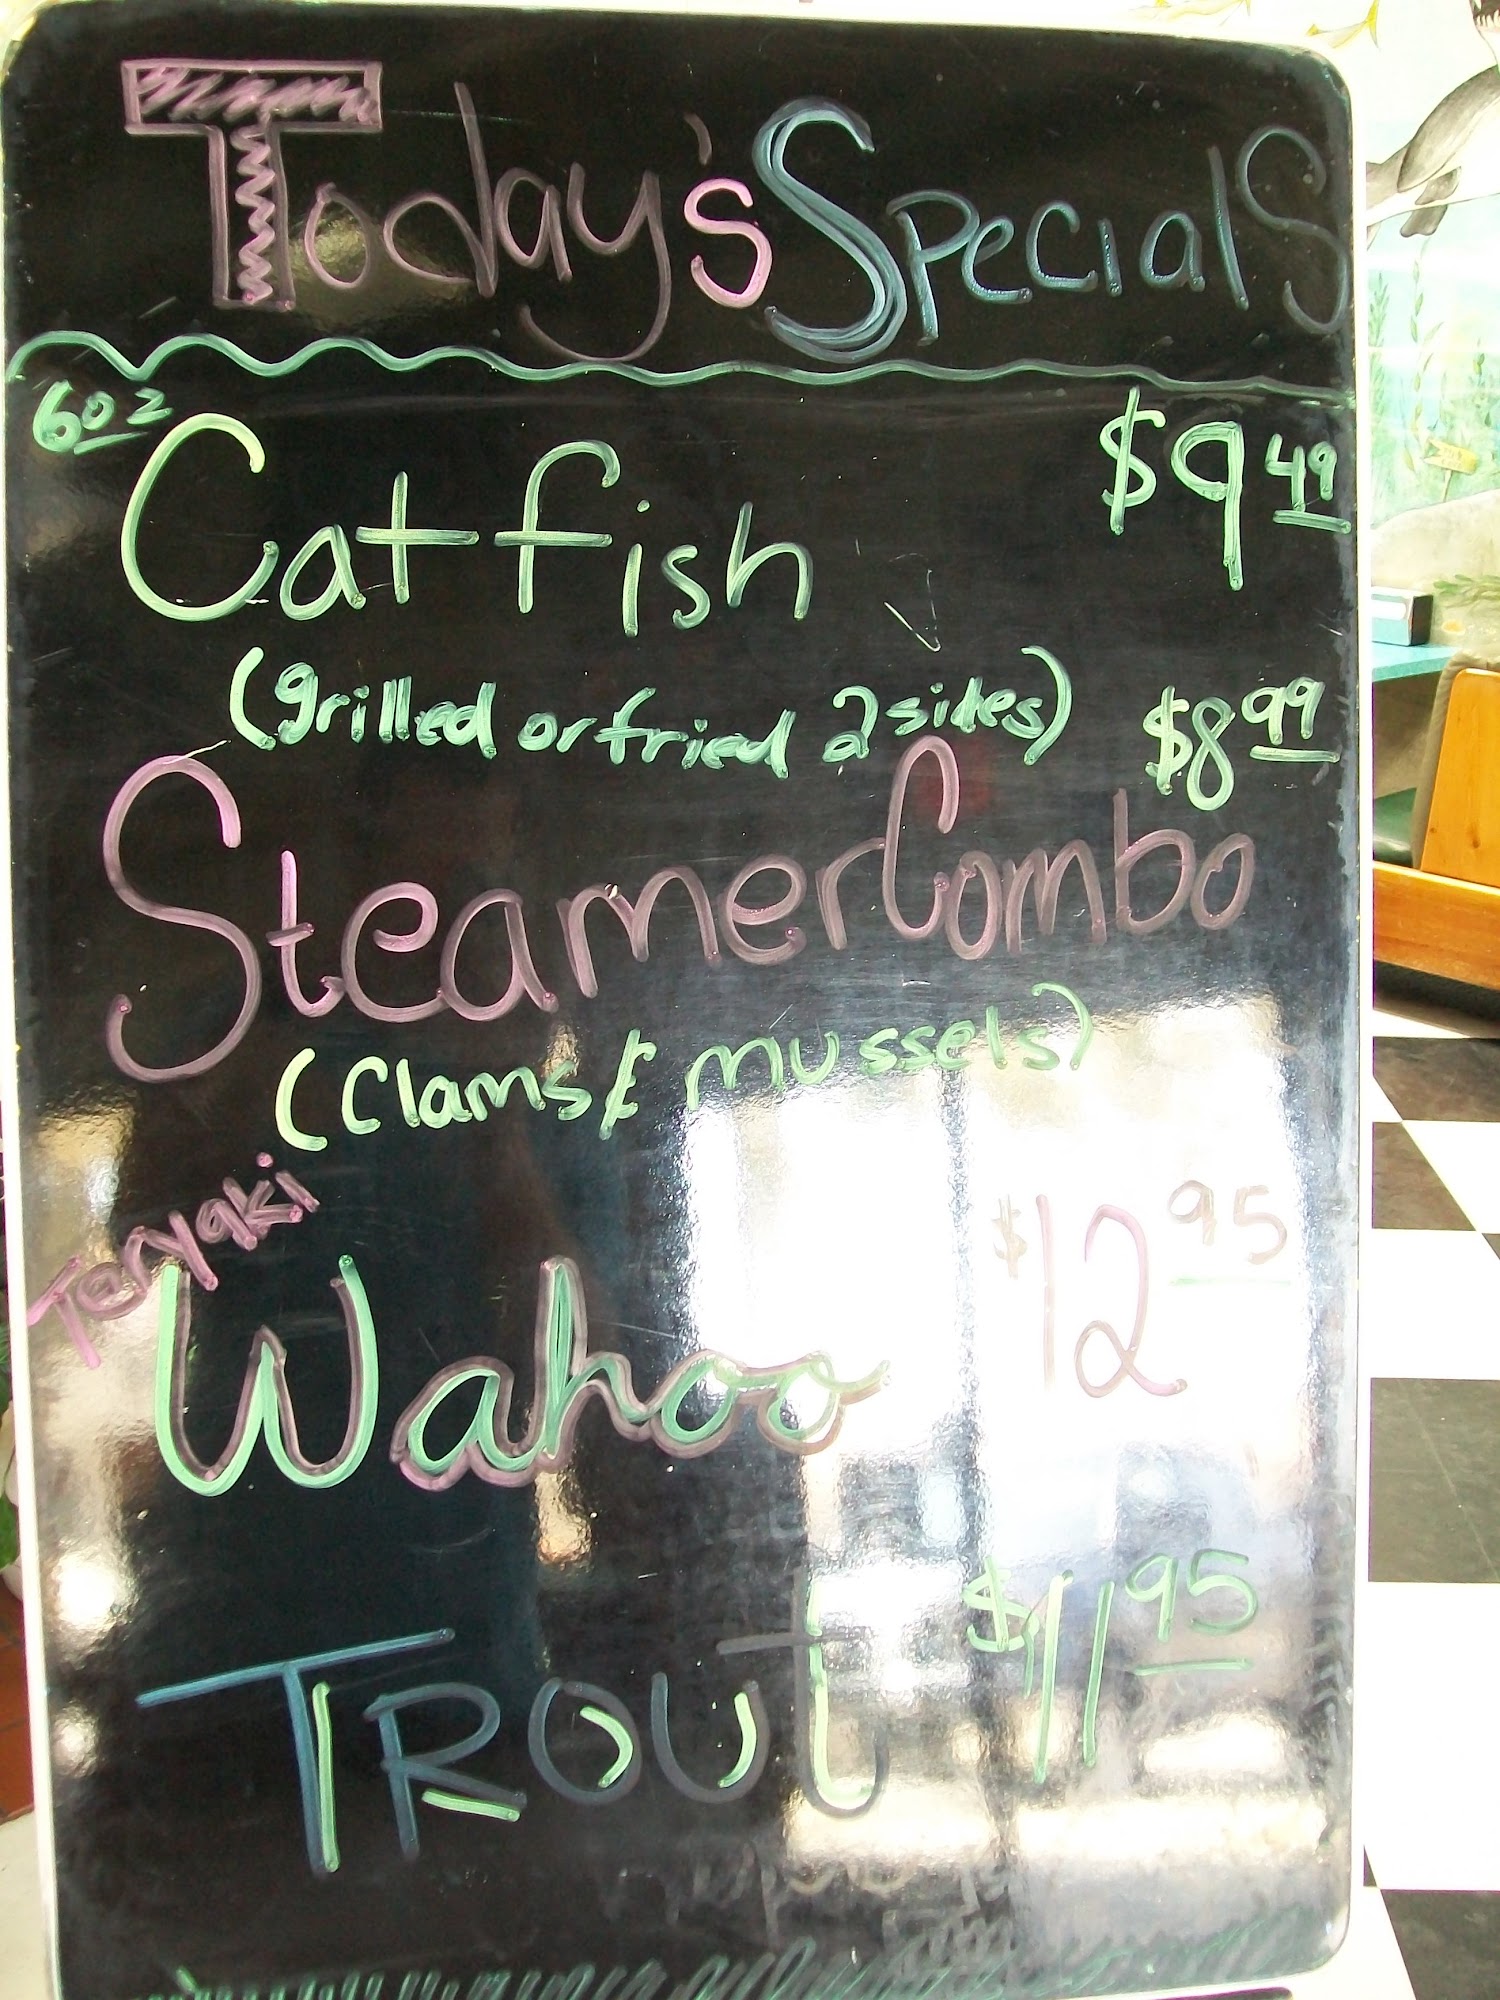 Today's Specials
6oz
Catfish $9.49
(grilled or fried 2 sides)
$8.99
Steamer Combo
(Clams & mussels)
Teryaki
Wahoo $12.95
Trout $11.95